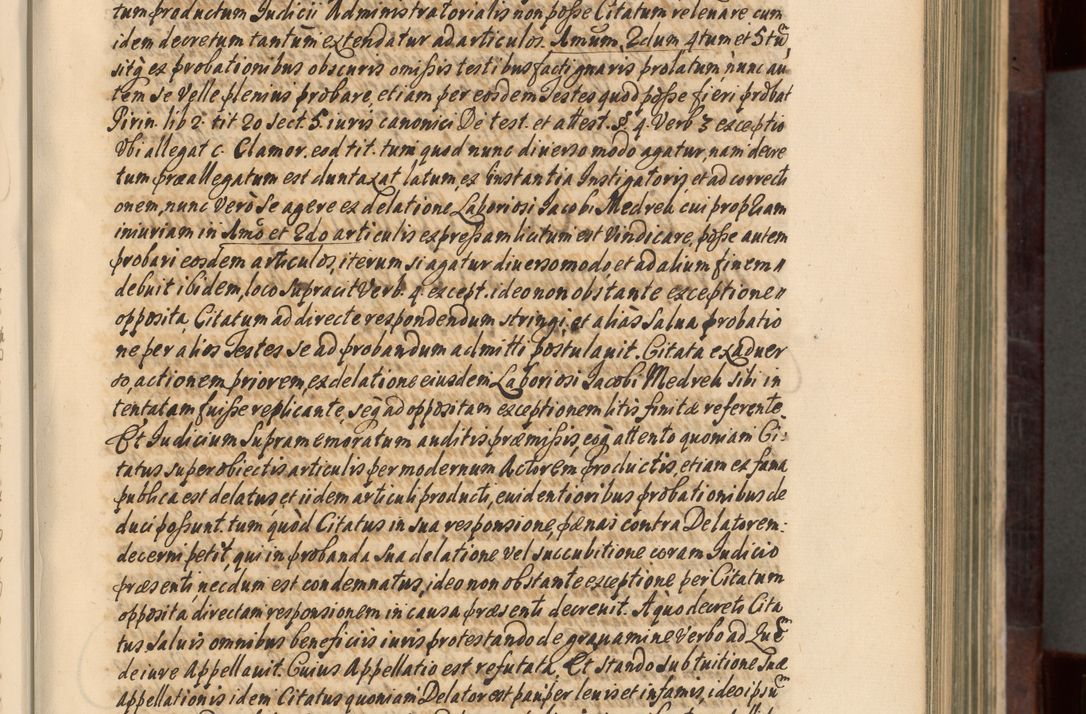 tum productum Judicii Administratorialis non posse Citatum relevare cum
idem decretum tantum extendatur ad articulos Amum 2dum 4tum et 5tũ,
sitq̃ ex probationibus obscuris omissis testibus facti gnaris prolatum, nunc au
tem se velle plenius probare, etiam per eosdem Testes quod posse fieri probat
Pirin. lib 2. tit 20 Sect. 5. iuris canonici De test. et attest. §. 4. Verb 3 exceptio
Vbi allegat c. Clamor. eod tit. tum quod nunc diverso modo agatur, nam decre
tum præallegatum est duntaxat latum, ex instantia Instigatoris et ad correcti
onem, nunc verò se agere ex delatione Laboriosi Jacobi Medrek cui propriam
iniuriam in Amo et 2do articulis expressam licitum est vindicare, posse autem
probari eosdem articulos, iterum si agatur diverso modo et ad alium finem
debuit ibidem, loco supra cit Verb. 4 except. ideo non obstante exceptione
opposita Citatum ad directe respondendum stringi, et alias salva probatio
ne per alios Testes se ad probandum admitti postulavit. Citata ex adver
so, actionem priorem, ex delatione eiusdem Laboriosi Jacobi Medrek sibi in
tentatam fuisse replicante, seq̃ ad oppositam exceptionem litis finitæ referente.
Et Judicium Supramemoratum auditis præmissis, eoq̃ attento quoniam Ci:
tatus super obiectis articulis per modernum Actorem productis, etiam ex fama
publica est delatus, et iidem articuli producti, evidentioribus probationibus de
duci possunt. tum quòd Citatus in sua responsione, pænas contra Delatorem:
decerni petit, qui in probanda sua delatione vel succubitione coram Judicio
præsenti necdum est condemnatus, ideo non obstante exceptione per Citatum
opposita directam responsionem in causa præsenti decrevit. A quo decreto Cita
tus salvis omnibus beneficiis iuris protestando de gravamine verbo ad
de iure Appellavit. Cuius Appellatio est refutata. Et stando sub tuitione suæ
Appellationis idem Citatus quoniam Delator est pauper levis et infamis, ideo ipsũ